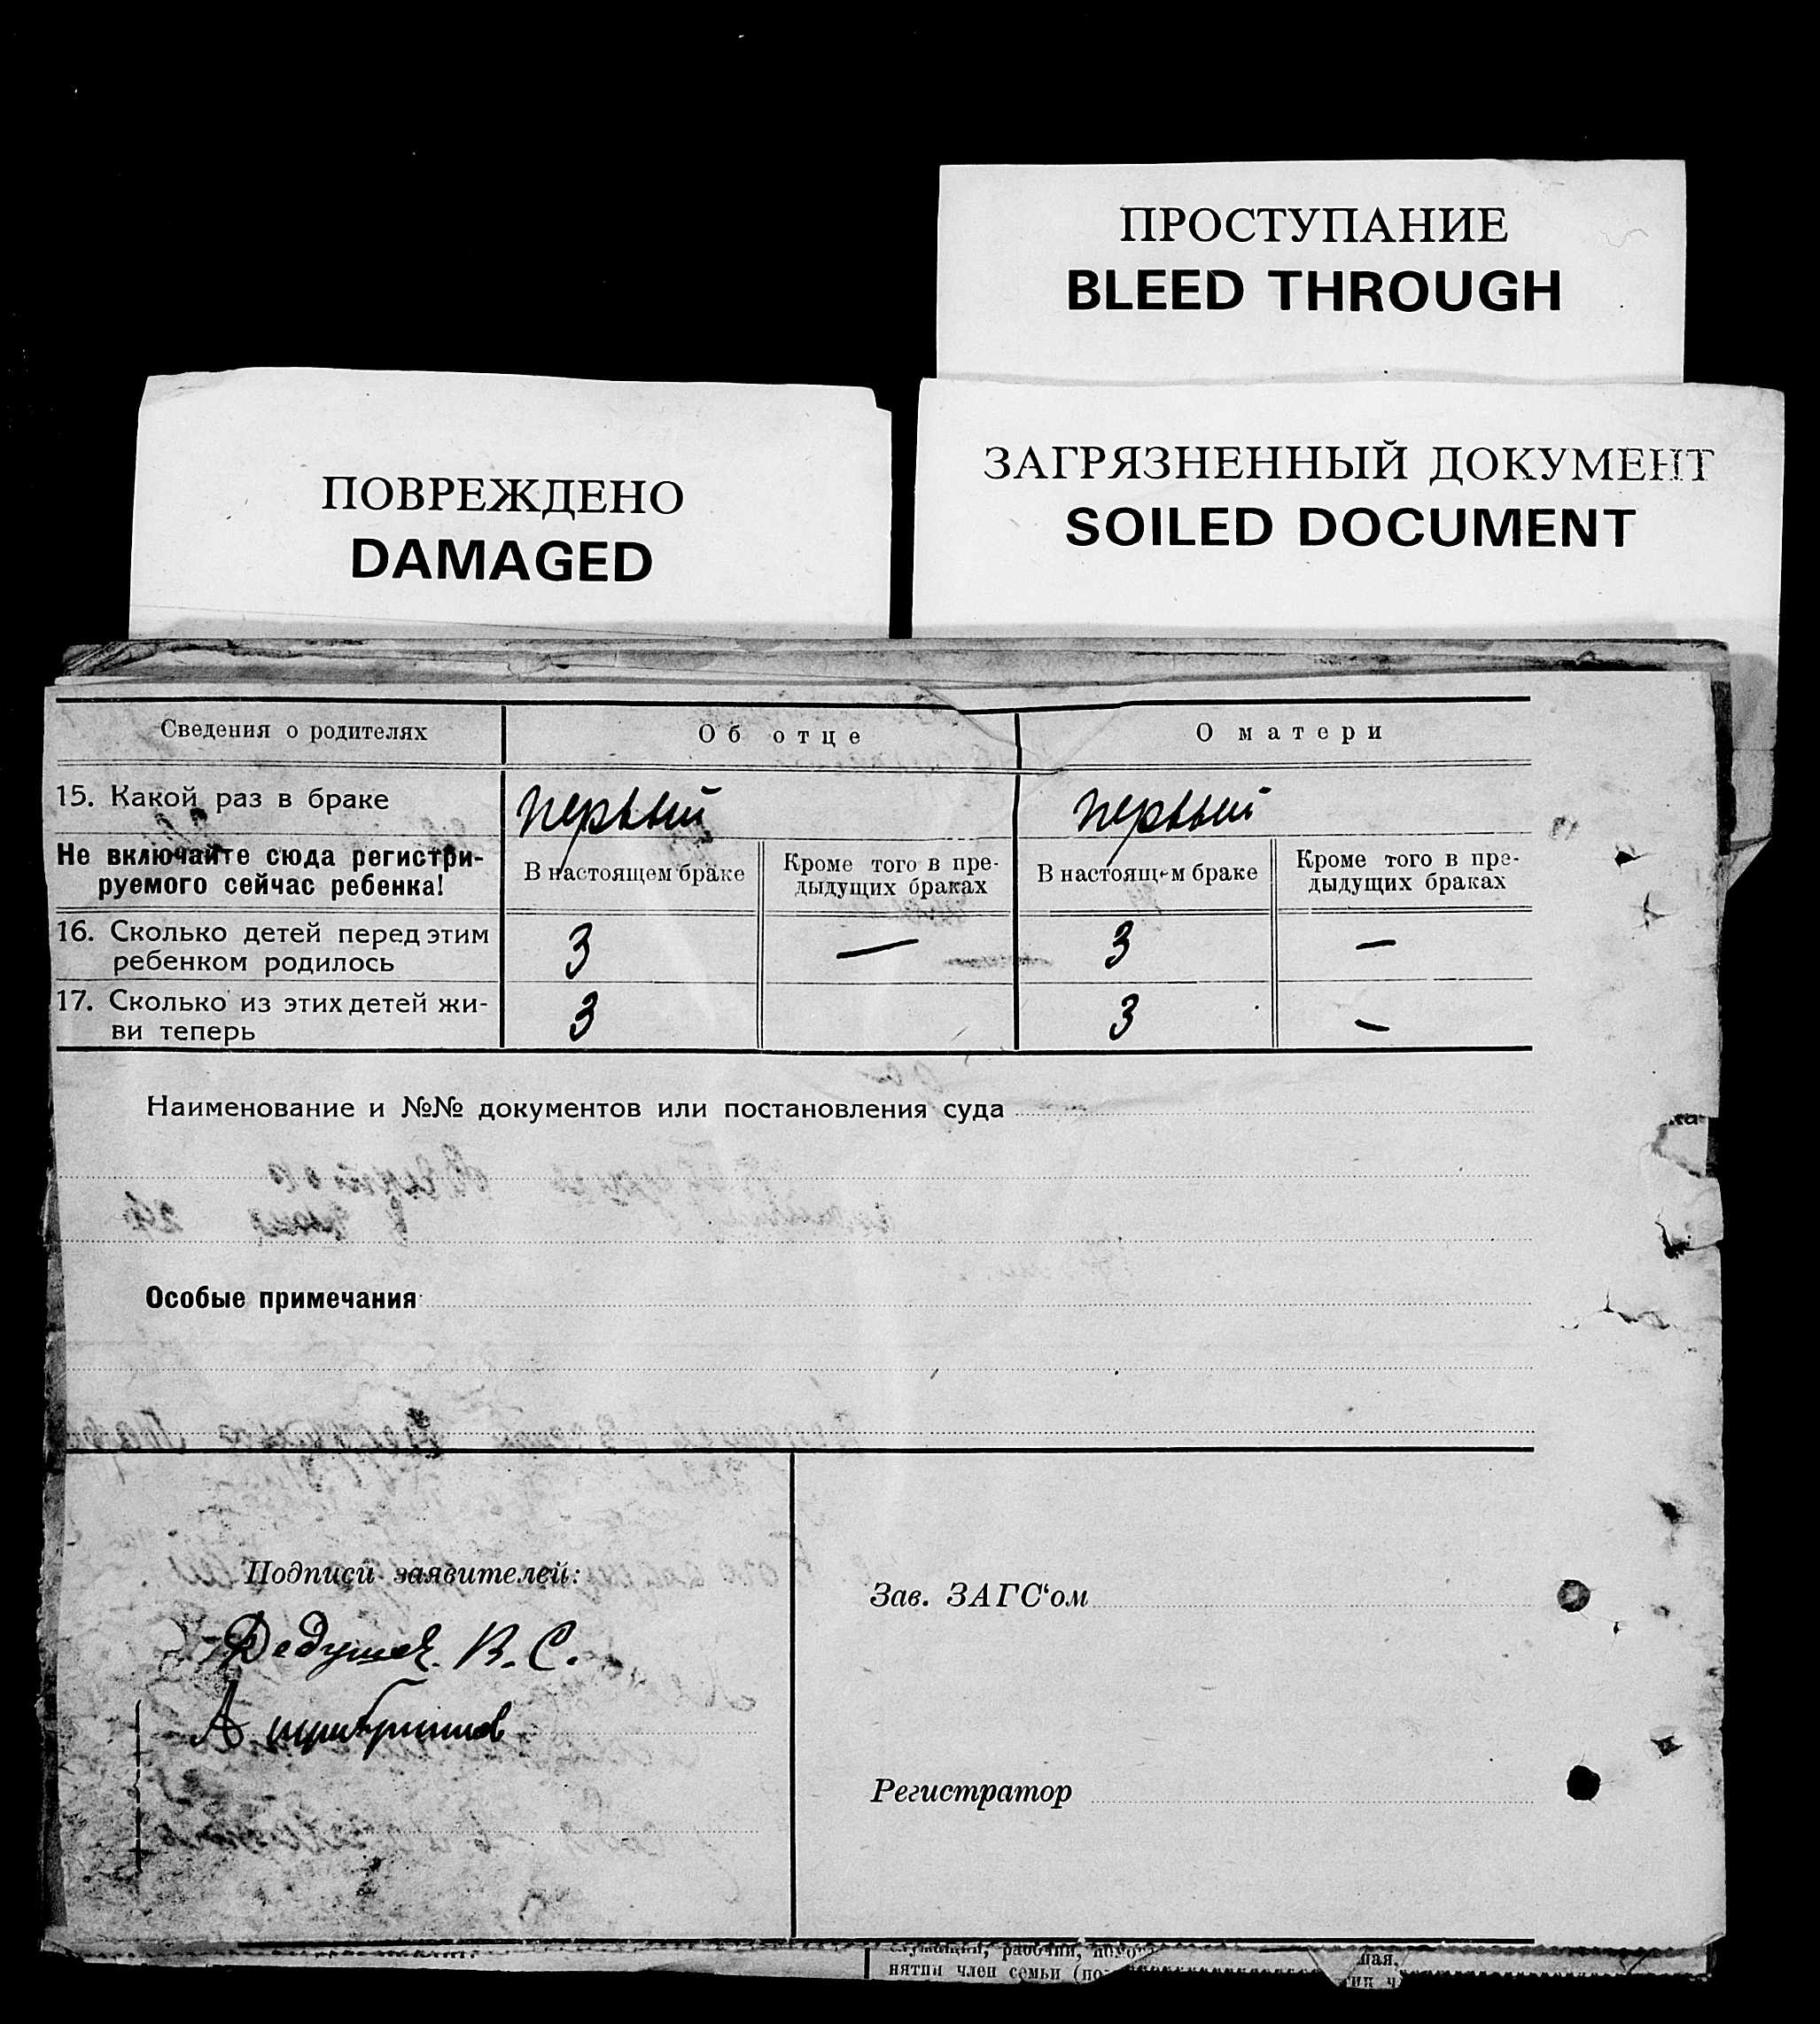 ПРОСТУПАНИЕ
BLEED THROUGH
ПОВРЕЖДЕНО
DAMAGED
ЗАГРЯЗНЕННЫЙ ДОКУМЕНТ
SOILED DOCUMENT
Сведения о родителях Об отце О матери
15. Какой раз в браке первый первый
Не включайте сюда регистри-
руемого сейчас ребенка!
В настоящем браке
Кроме того в пре-
дыдущих браках
В настоящем браке
Кроме того в пре-
дыдущих браках
16. Сколько детей перед этим
ребенком родилось 3 — 3 —
17. Сколько из этих детей жи-
ви теперь 3 3 —
Наименование и №№ документов или постановления суда
Особые примечания
Подписи заявителей:
В. С.
А
Зав. ЗАГС‘ом
Регистратор
рабочий,
нятии член семьи